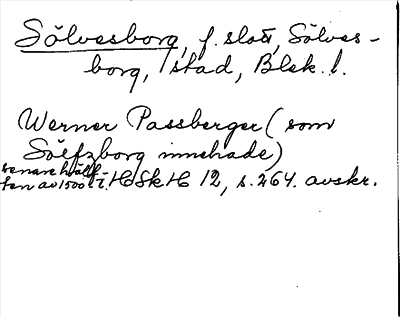 Sölvesborg, f. slott, Sölves-
borg, stad, Blek. l.
Werner Passberger (som
Sölfzborg innehade)
senare hälf-
ten av 1500 t. HSkH 12, s. 264. avskr.